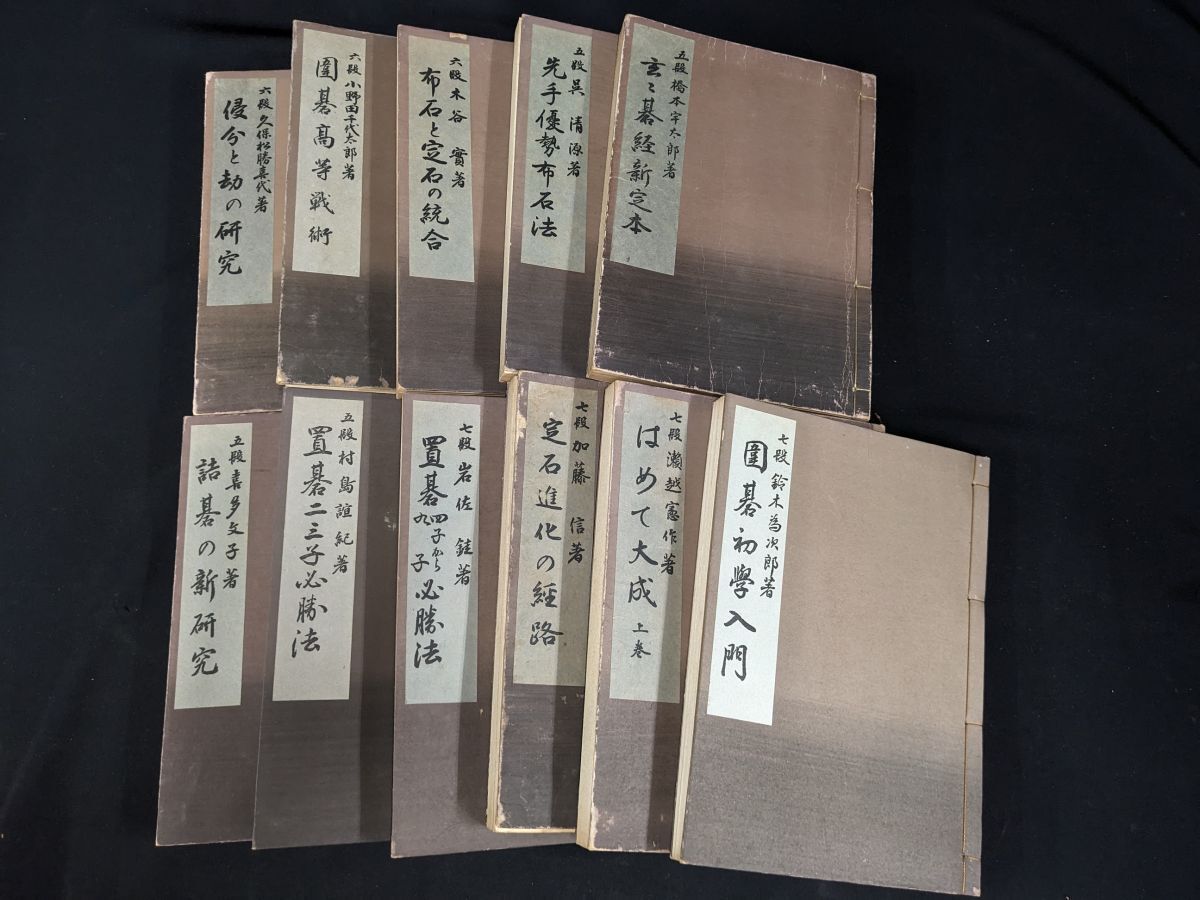 五段橋本宇太郎著
玄〻碁経新定本
五段呉清源著
先手優勢布石法
六段木谷實著
布石と定石の統合
六段小野田千代太郎著
圍碁高等戦術
六段久保松勝喜代著
侵分と劫の研究
七段鈴木為次郎著
圍碁初學入門
七段瀬越憲作著
はめて大成 上巻
七段加藤信著
定石進化の経路
七段岩佐銈著
置碁四子から九子必勝法
五段村島誼紀著
置碁二三子必勝法
五段喜多文子著
詰碁の新研究